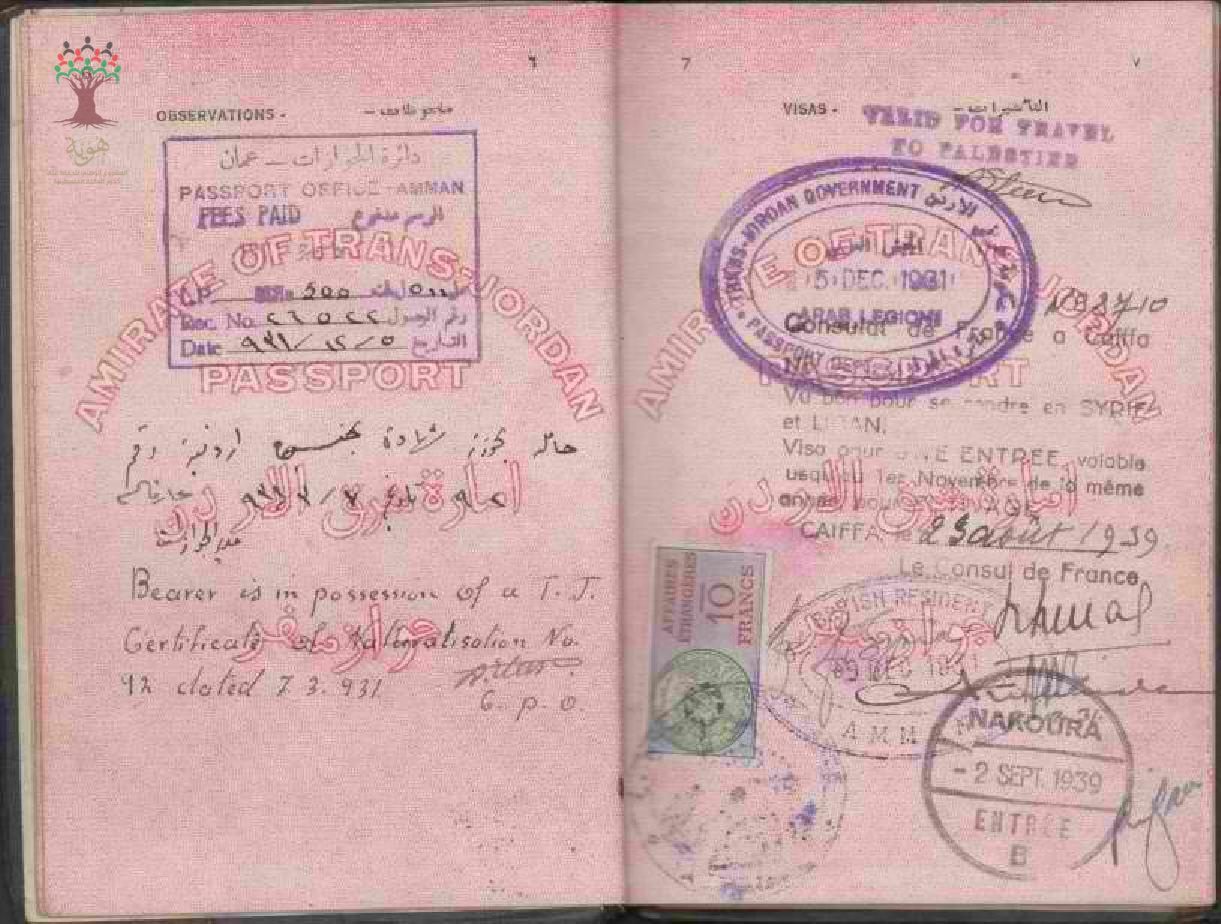 هوية
٦
OBSERVATIONS -
ملحوظات -
دائرة الجوازات - عمان
PASSPORT OFFICE - AMMAN
FEES PAID الرسم مدفوع
500
Rec. No. ٢٦٥٢٢ رقم الوصول
Date ٩٣١/١٢/٥ التاريخ
AMIRATE OF TRANS-JORDAN
PASSPORT
حامله يحوز شهادة تجنس اردنية رقم
٩٢ تاريخ ٩٣١/٣/٧
مدير الجوازات
امارة شرق الاردن
جواز سفر
Bearer is in possession of a T. J.
Certificate of Naturalisation No.
92 dated 7.3.931
C. P. O.
7
٧
VISAS -
التأشيرات -
VALID FOR TRAVEL
TO PALESTINE
TRANS-JORDAN GOVERNMENT
5 DEC. 1931
ARAB LEGION
PASSPORT OFFICE
AMIRATE OF TRANS-JORDAN
PASSPORT
Nº 3710
Consulat de France a Caiffa
Vu bon pour se rendre en SYRIE
et LIBAN.
Visa pour UNE ENTREE, valable
jusqu'au 1er Novembre de la même
année
CAIFFA, le 23 août 1939
Le Consul de France,
امارة شرق الاردن
جواز سفر
AFFAIRES
ÉTRANGÈRES
10
FRANCS
BRITISH RESIDENT
DEC 1931
AMMAN
NAKOURA
- 2 SEPT. 1939
ENTRÉE
B